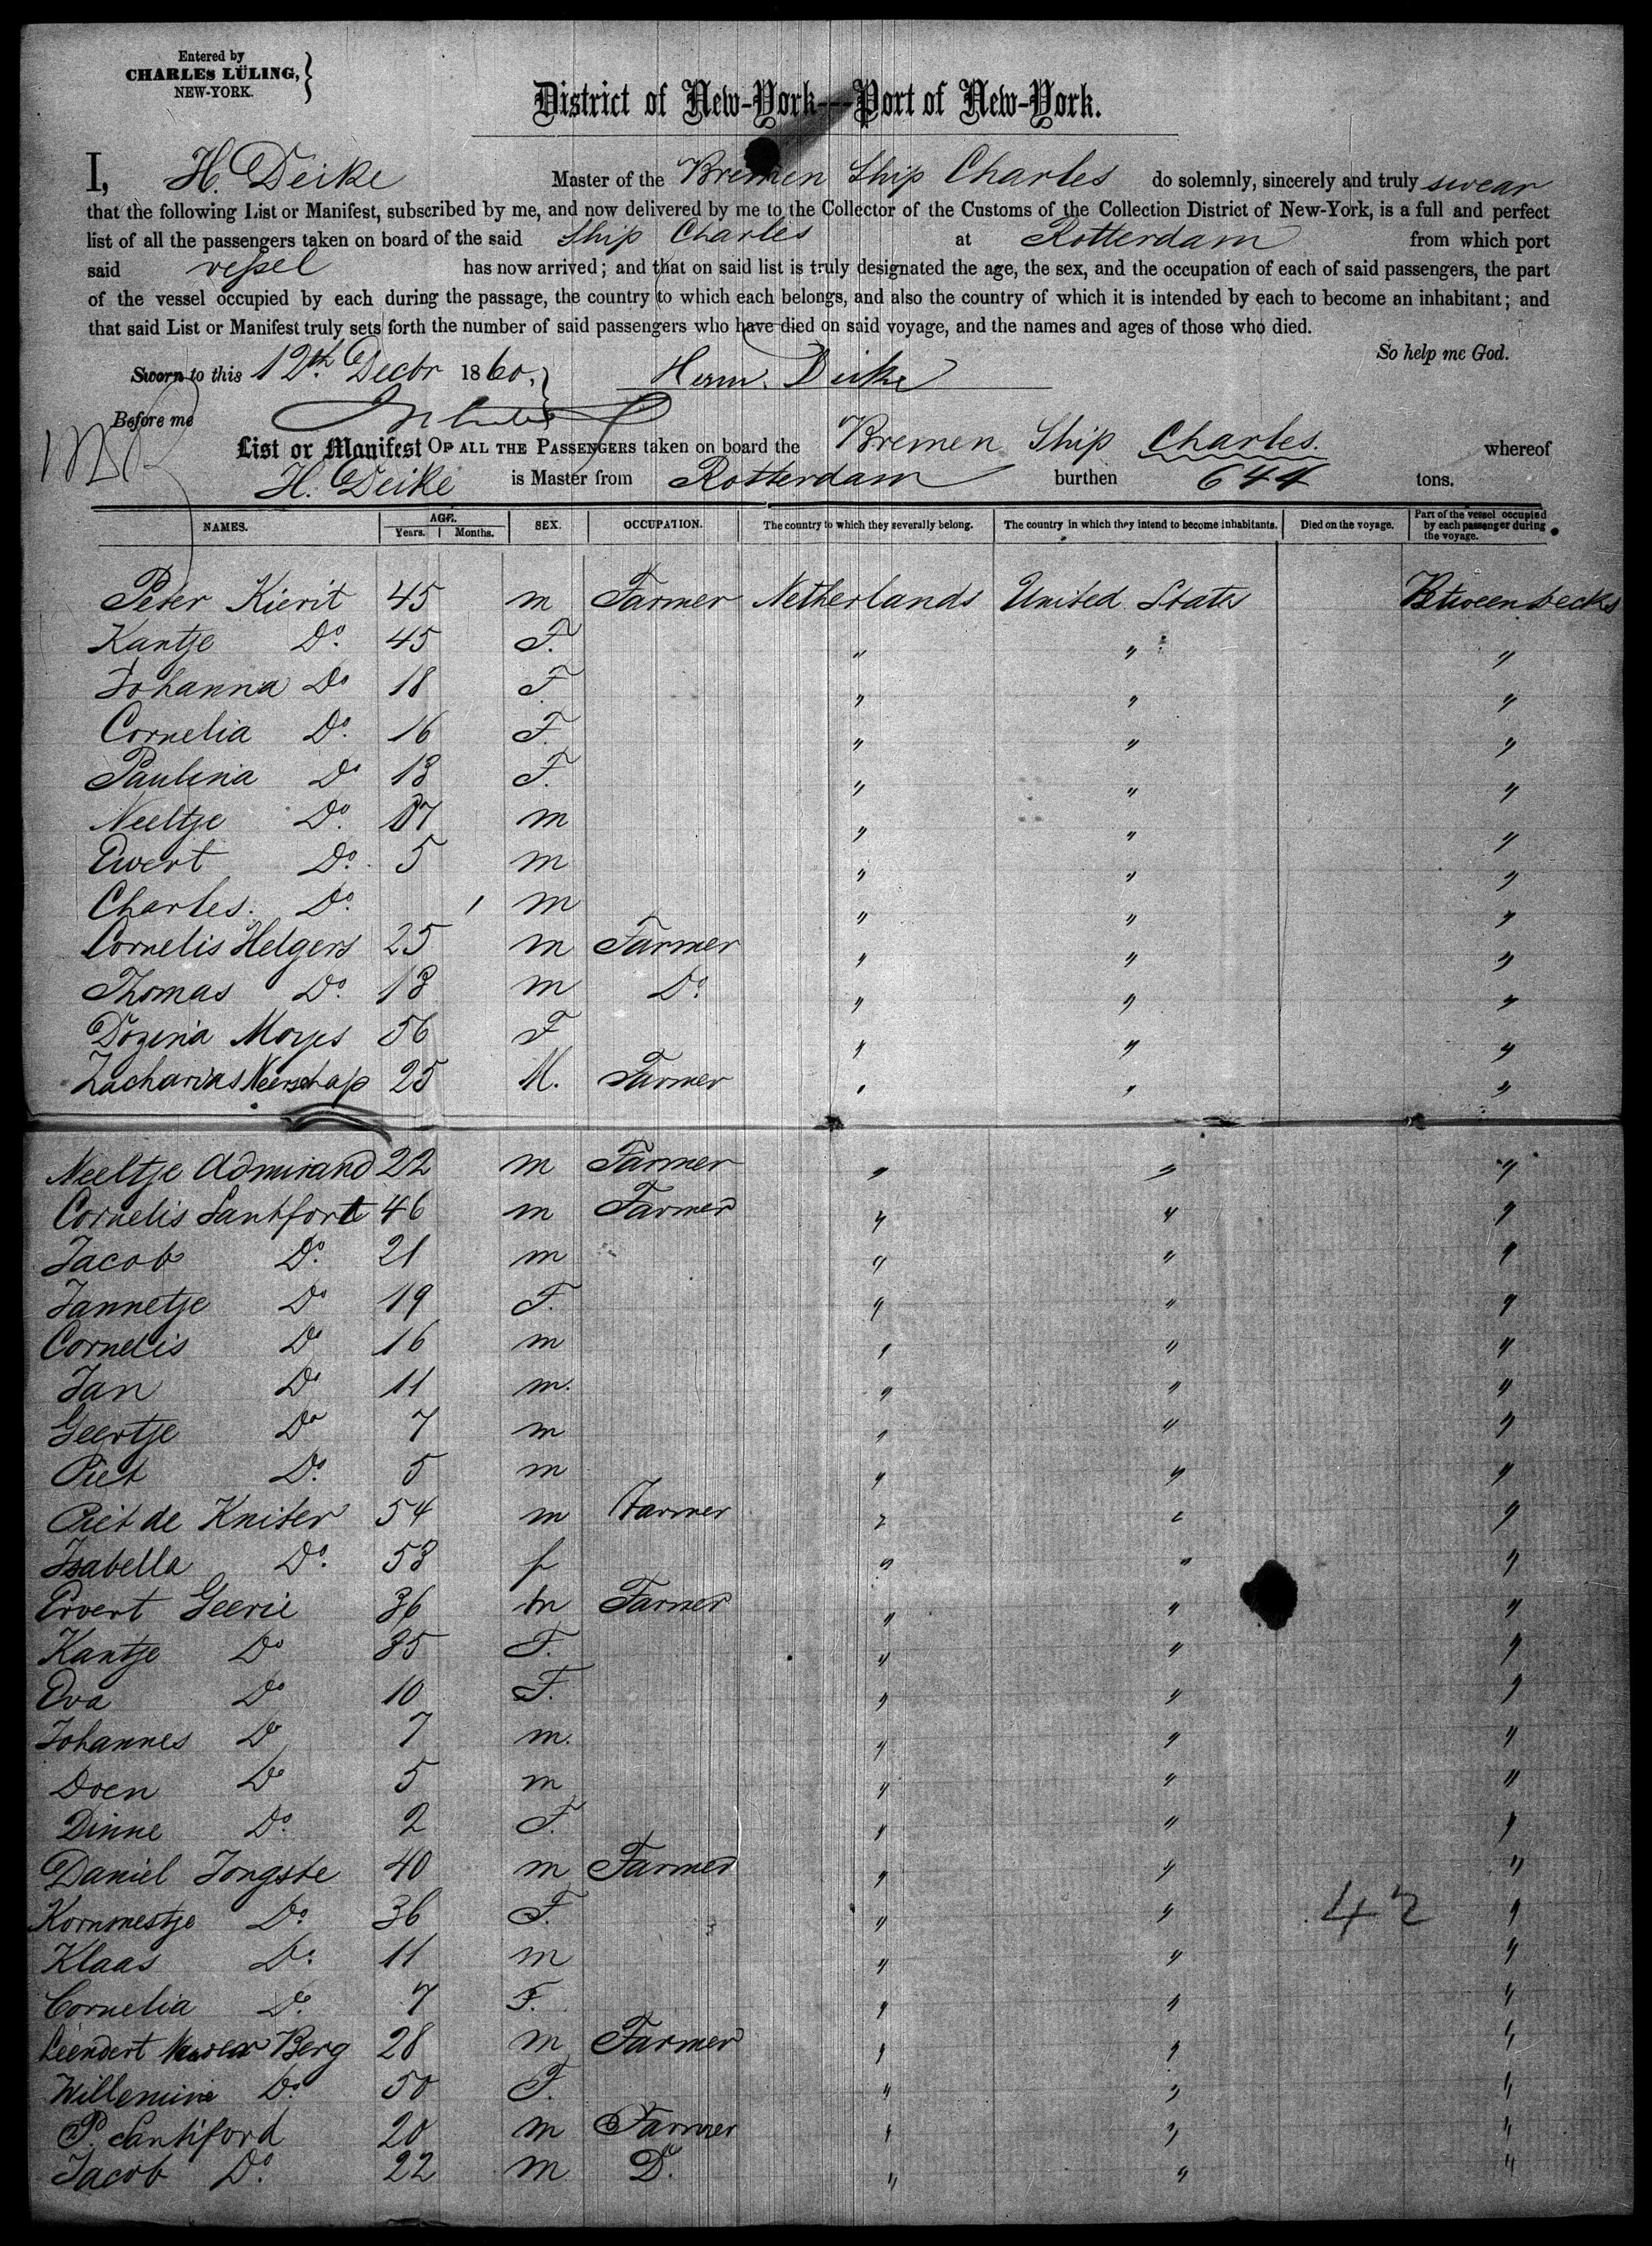 Entered by
CHARLES LÜLING,
NEW-YORK.
District of New-York---Port of New-York.
I, H. Deike Master of the Bremen Ship Charles do solemnly, sincerely and truly swear
that the following List or Manifest, subscribed by me, and now delivered by me to the Collector of the Customs of the Collection District of New-York, is a full and perfect
list of all the passengers taken on board of the said Ship Charles at Rotterdam from which port
said vessel has now arrived; and that on said list is truly designated the age, the sex, and the occupation of each of said passengers, the part
of the vessel occupied by each during the passage, the country to which each belongs, and also the country of which it is intended by each to become an inhabitant; and
that said List or Manifest truly sets forth the number of said passengers who have died on said voyage, and the names and ages of those who died.
So help me God.
Sworn to this 12th. Decbr 1860, Herm. Deike
Before me
List or Manifest OF ALL THE PASSENGERS taken on board the Bremen Ship Charles. whereof
H. Deike is Master from Rotterdam burthen 644 tons.
NAMES. AGE. Years. Months. SEX. OCCUPATION. The country to which they severally belong. The country in which they intend to become inhabitants. Died on the voyage. Part of the vessel occupied by each passenger during the voyage.
Peter Kierit 45 m Farmer Netherlands United States Btweendecks
Kantje Do. 45 F. " " "
Johanna Do 18 F " " "
Cornelia Do. 16 F. " " "
Paulina Do 13 F. " " "
Neeltje Do. 7 m " " "
Ewert Do. 5 m " " "
Charles. Do. 1 m " " "
Cornelis Helgers 25 m Farmer " " "
Thomas Do. 18 m Do. " " "
Dozena Moyes 56 F " " "
Zacharias Neerschap 25 M. Farmer " " "
Neeltje Admirand 22 m Farmer " " "
Cornelis Santfort 46 m Farmer " " "
Jacob Do. 21 m " " "
Jannetje Do 19 F. " " "
Cornelis Do 16 m " " "
Jan Do 11 m. " " "
Geertje Do 7 m " " "
Piet Do. 5 m " " "
Piet de Kniter 54 m Farmer " " "
Isabella Do. 53 f " " "
Ervert Geerie 36 m Farmer " " "
Kantje Do 35 F. " " "
Eva Do 10 F. " " "
Johannes Do 7 m. " " "
Doen Do 5 m " " "
Dinne Do. 2 F. " " "
Daniel Jongste 40 m Farmer " " "
Kornmestje Do. 36 F. " " 42 "
Klaas Do. 11 m " " "
Cornelia Do. 7 F. " " "
Leendert Berg 28 m Farmer " " "
Willemine Do. 50 F. " " "
P. Santiford 20 m Farmer " " "
Jacob Do. 22 m Do. " " "